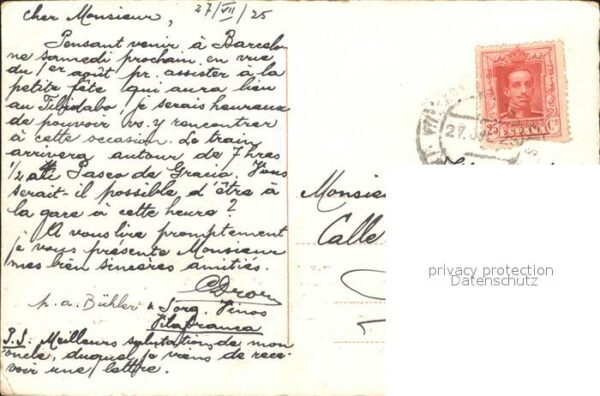 27/VII/25
Cher Monsieur,
Pensant venir à Barcelo-
ne samedi prochain, en vue
du 1er août pr. assister à la
petite fête qui aura lieu
au Tibidabo, je serais heureux
de pouvoir vs. y rencontrer
à cette occasion. Le train
arrivera autour de 7 hres
1/2 au Paseo de Gracia. Vous
serait-il possible d'être à
la gare à cette heure?
A vous lire promptement
je vous présente Monsieur
mes bien sincères amitiés.
p. a. Bühler & Sorg. Vinos
Vilafranca
P.S: Meilleurs salutations de mon
oncle, duquel je viens de rece-
voir une lettre.
25 Cs
ESPAÑA
27.
Monsie
Calle
privacy protection
Datenschutz